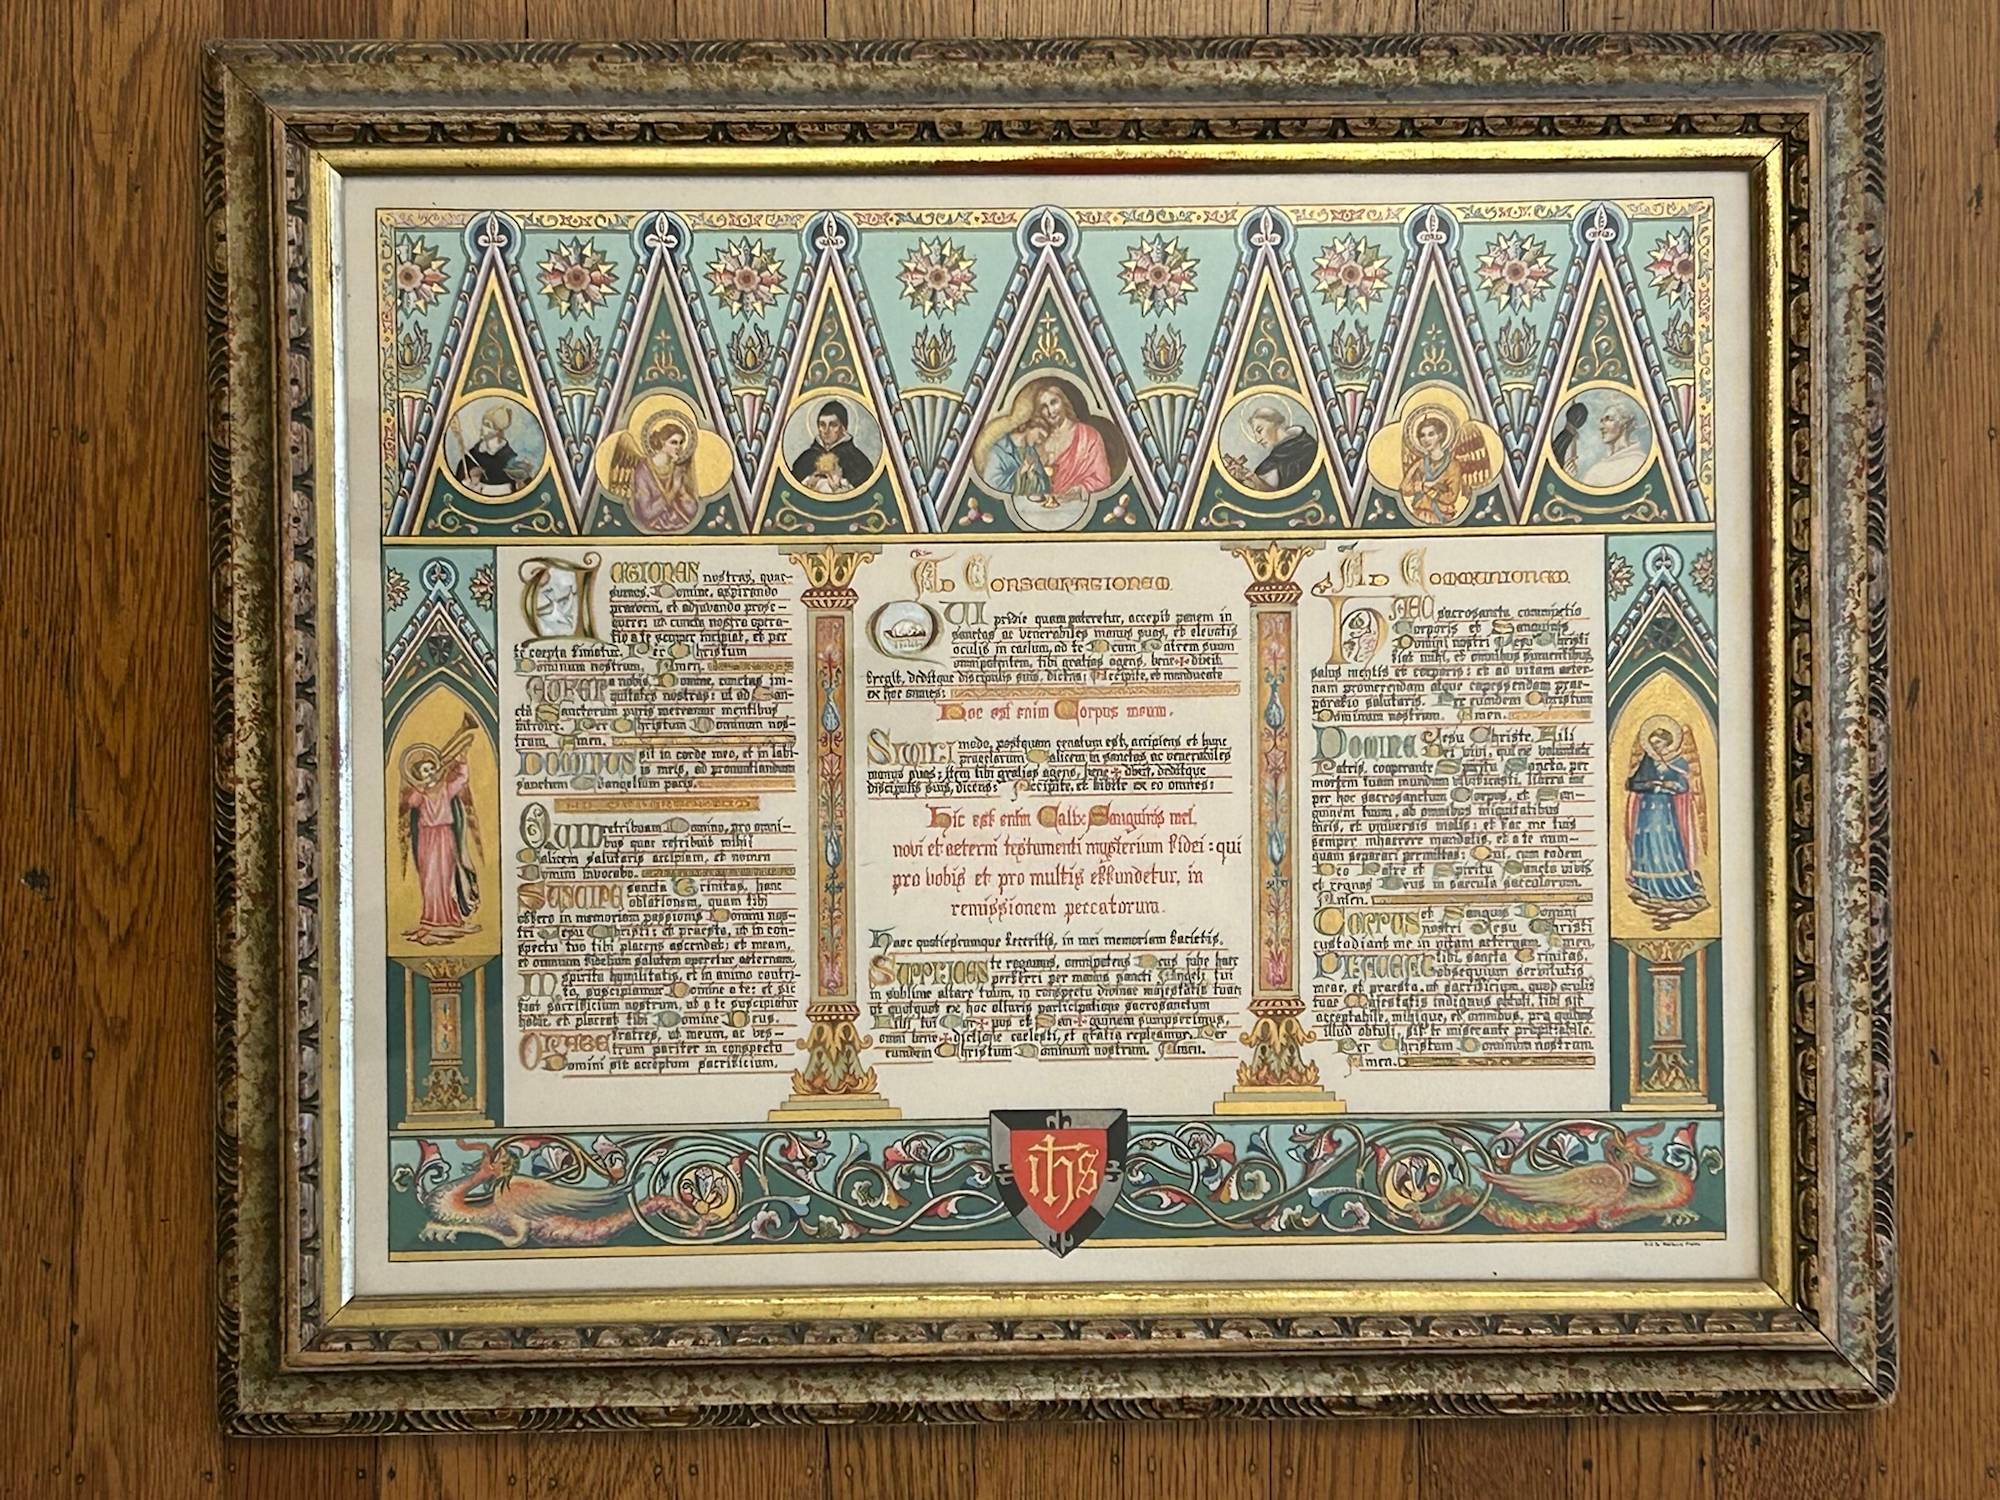 ACTIONES nostras, quae-
sumus, Domine, aspirando
praeveni, et adjuvando prose-
quere: ut cuncta nostra opera-
tio a te semper incipiat, et per
te coepta finiatur. Per Christum
Dominum nostrum. Amen.
AUFER a nobis, Domine, cunctas ini-
quitates nostras: ut ad San-
cta Sanctorum puris mereamur mentibus
introire. Per Christum Dominum nos-
trum. Amen.
DOMINUS sit in corde meo, et in labi-
is meis, ad pronuntiandum
sanctum Evangelium pacis.
QUID retribuam Domino, pro omni-
bus quae retribuit mihi
Calicem salutaris accipiam, et nomen
Domini invocabo.
SUSCIPE sancta Trinitas, hanc
oblationem, quam tibi
offero in memoriam passionis Domini nos-
tri Jesu Christi: et praesta, ut in con-
spectu tuo tibi placens ascendat; et meam,
et omnium fidelium salutem operetur aeternam.
IN spiritu humilitatis, et in animo contri-
to, suscipiamur Domine a te: et sic
fiat sacrificium nostrum, ut a te suscipiatur
hodie, et placeat tibi Domine Deus.
ORATE fratres, ut meum, ac ves-
trum pariter in conspectu
Domini sit acceptum sacrificium.
AD CONSECRATIONEM
QUI pridie quam pateretur, accepit panem in
sanctas ac venerabiles manus suas, et elevatis
oculis in caelum, ad te Deum Patrem suum
omnipotentem, tibi gratias agens, bene+dixit
fregit, deditque discipulis suis, dicens: Accipite, et manducate
ex hoc omnes:
Hoc est enim Corpus meum.
SIMILI modo, postquam cenatum est, accipiens et hunc
praeclarum Calicem in sanctas ac venerabiles
manus suas: item tibi gratias agens, bene+dixit, deditque
discipulis suis, dicens: Accipite, et bibite ex eo omnes:
Hic est enim Calix Sanguinis mei,
novi et aeterni testamenti mysterium fidei: qui
pro vobis et pro multis effundetur, in
remissionem peccatorum.
Haec quotiescumque feceritis, in mei memoriam facietis.
SUPPLICES te rogamus, omnipotens Deus jube haec
perferri per manus sancti Angeli tui
in sublime altare tuum, in conspectu divinae majestatis tuae:
ut quotquot ex hoc altaris participatione sacrosanctum
Filii tui Cor+pus et San+guinem sumpserimus,
omni bene+dictione caelesti, et gratia repleamur. Per
eumdem Christum Dominum nostrum. Amen.
AD COMMUNIONEM
HAEC sacrosancta commixtio
Corporis et Sanguinis
Domini nostri Jesu Christi
fiat mihi, et omnibus sumentibus,
salus mentis et corporis: et ad vitam aeter-
nam promerendam atque capessendam prae-
paratio salutaris. Per eumdem Christum
Dominum nostrum. Amen.
DOMINE Jesu Christe, Fili
Dei vivi, qui ex voluntate
Patris, cooperante Spiritu Sancto, per
mortem tuam mundum vivificasti, libera me
per hoc sacrosanctum Corpus, et San-
guinem tuum, ab omnibus iniquitatibus
meis, et universis malis: et fac me tuis
semper inhaerere mandatis, et a te num-
quam separari permittas: Qui, cum eodem
Deo Patre et Spiritu Sancto vivis
et regnas Deus in saecula saeculorum.
Amen.
CORPUS et Sanguis Domini
nostri Jesu Christi
custodiant me in vitam aeternam. Amen.
PLACEAT tibi, sancta Trinitas,
obsequium servitutis
meae, et praesta, ut sacrificium, quod oculis
tuae Majestatis indignus obtuli, tibi sit
acceptabile, mihique, et omnibus, pro quibus
illud obtuli, sit te miserante propitiabile.
Per Christum Dominum nostrum
Amen.
ihs